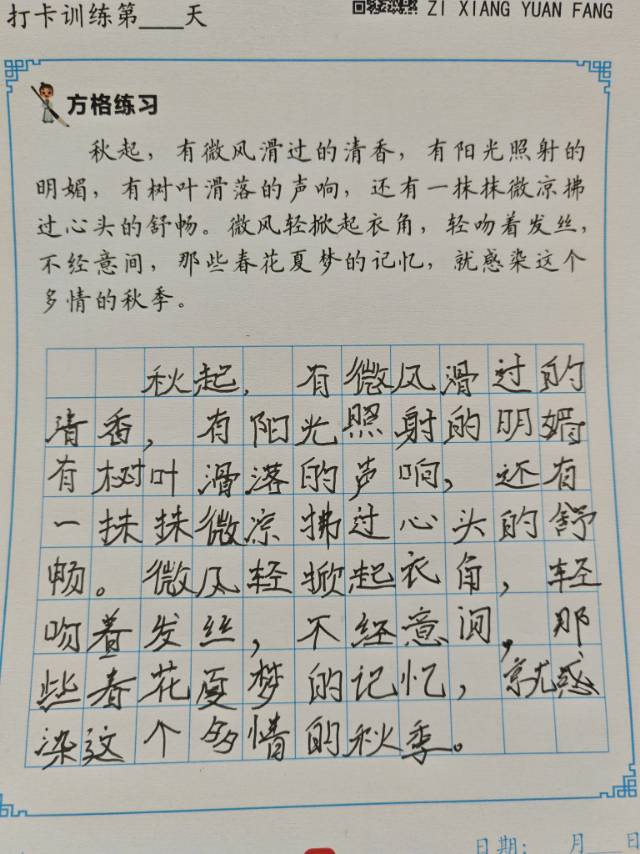 打卡训练第___天
ZI XIANG YUAN FANG
方格练习
秋起，有微风滑过的清香，有阳光照射的
明媚，有树叶滑落的声响，还有一抹抹微凉拂
过心头的舒畅。微风轻掀起衣角，轻吻着发丝，
不经意间，那些春花夏梦的记忆，就感染这个
多情的秋季。
秋起，有微风滑过的
清香，有阳光照射的明媚
有树叶滑落的声响，还有
一抹抹微凉拂过心头的舒
畅。微风轻掀起衣角，轻
吻着发丝，不经意间，那
些春花夏梦的记忆，就感
染这个多情的秋季。
日期：___月___日